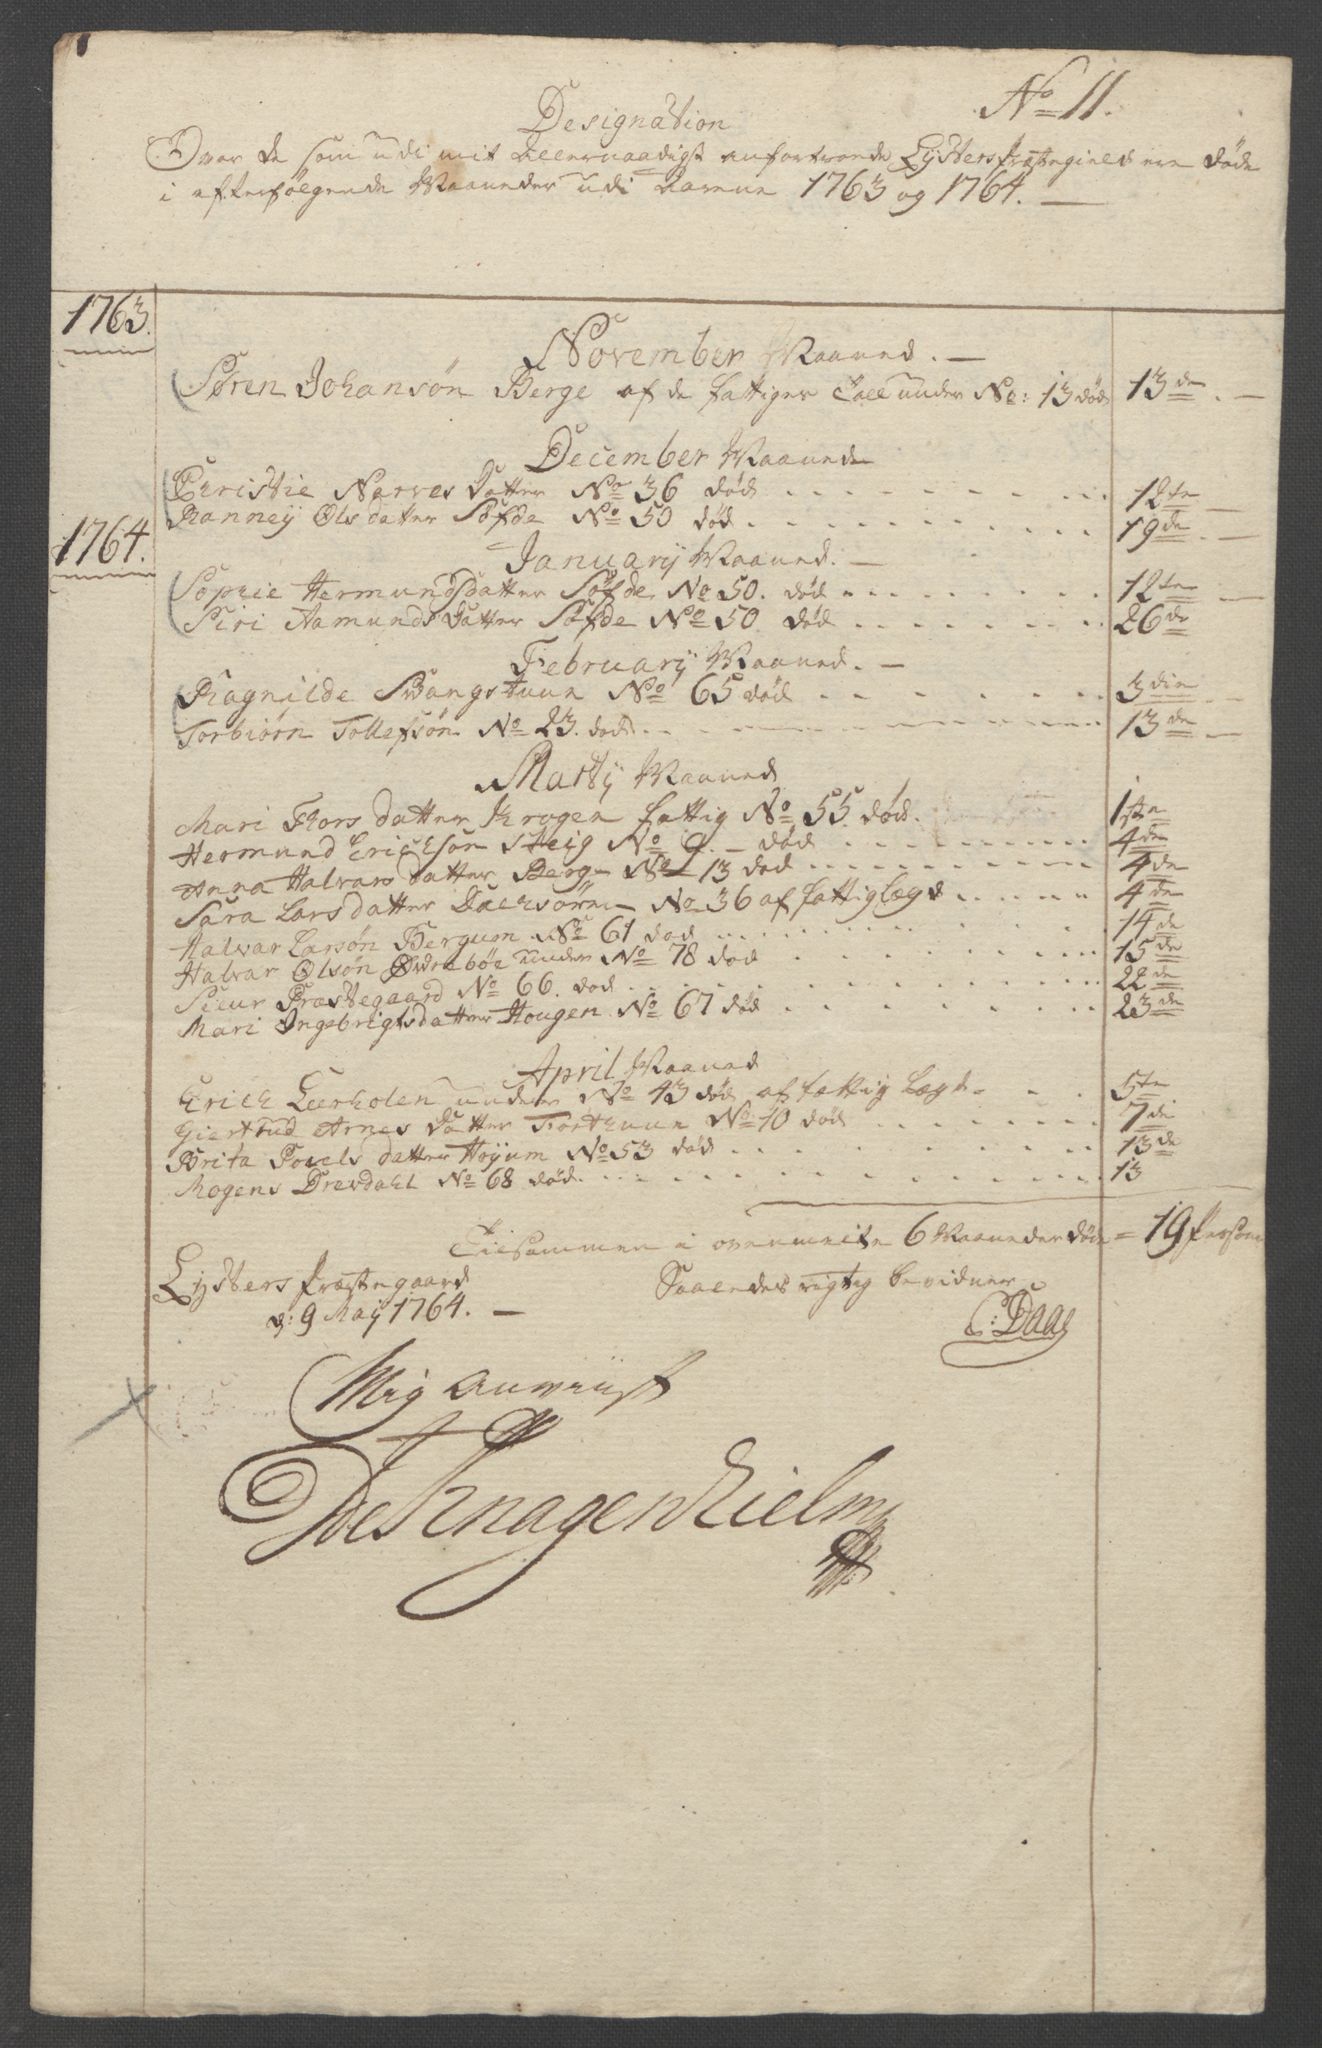 No 11.
Designation
Over de som udi mit allernaadigst anfortroede Lysters Præstegield ere døde
i efterfølgende Maaneder udi Aarene 1763 og 1764. —
1763.
November Maaned. —
Søren Johansøn Berge af de fattiges Tall under No: 13 død 13de. —
December Maaned
Christie Narves Datter No 36 død 12te
Ranney Ols datter Søfde No 50 død 19de. —
1764.
January Maaned. —
Sophie Hermundsdatter Søfde No 50. død 12te
Siri Aamunds Datter Søfde No 50 død 26de
February Maaned. —
Ragnilde Svangstuun No 65 død 3die
Torbiørn Tollefsøn No 23. død 13de
Marty Maaned
Mari Thors datter Krogen fattig No 55. død. 1ste
Hermund Erichsøn Steig No 9. – død 4de
Anna Halvars datter Berge No 13 død 4de
Sara Lars datter No 36 af fattig Lægd 4de
Halvar Larsøn Bergum No 61 død 14de
Halvar Olsøn Øvrebøe under No 78 død 15de
Siur Præstegaard No 66. død 22de
Mari Ingebrigtsdatter Hougen No 67 død 23de
April Maaned
Erich Leerholen under No 43 død af fattig Lægd 5te
Giertrud Arnes Datter Forthuun No 10 død 7de
Brita Povels datter Høyum No 53 død 13de
Mogens Drevdahl No 68 død 13
Tilsammen i ovenmelte 6 Maaneder døde = 19 Persone
Lysters Præstegaard
d: 9 Maij 1764. —
Saaledes rigtig bevidner
C: Daae
Mig anviist
de Knagenhielm